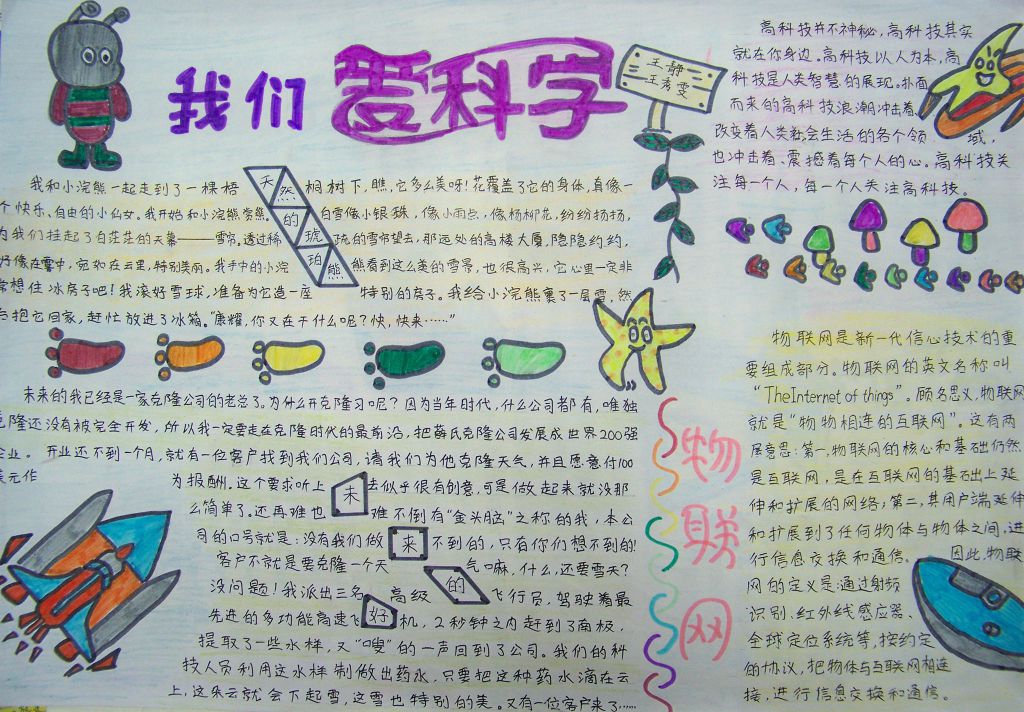 我们爱科学
王静
王秀雯
高科技并不神秘,高科技其实
就在你身边。高科技以人为本,高
科技是人类智慧的展现。扑面
而来的高科技浪潮冲击着,
改变着人类社会生活的各个领域,
也冲击着、震撼着每个人的心。高科技关
注每一个人,每一个人关注高科技。
天然的琥珀熊
我和小浣熊一起走到了一棵梧桐树下,瞧,它多么美呀!花覆盖了它的身体,真像一
个快乐、自由的小仙女。我开始和小浣熊赏熊。白雪像小银珠,像小雨点,像杨柳花,纷纷扬扬,
为我们挂起了白茫茫的天幕——雪帘。透过稀疏的雪帘望去,那远处的高楼大厦,隐隐约约,
好像在雾中,宛如在云里,特别美丽。我手中的小浣熊看到这么美的雪景,也很高兴,它心里一定非
常想住冰房子吧!我滚好雪球,准备为它造一座特别的房子。我给小浣熊裹了一层雪,然
后抱它回家,赶忙放进了冰箱。“康耀,你又在干什么呢?快,快来……”
未来的好
未来的我已经是一家克隆公司的老总了。为什么开克隆习呢?因为当年时代,什么公司都有,唯独
克隆还没有被完全开发,所以我一定要走在克隆时代的最前沿,把薛氏克隆公司发展成世界200强
企业。开业还不到一个月,就有一位客户找到我们公司,请我们为他克隆天气,并且愿意付100
美元作为报酬。这个要求听上去似乎很有创意,可是做起来就没那
么简单了。还再难也难不倒有“金头脑”之称的我,本公
司的口号就是:没有我们做不到的,只有你们想不到的!
客户不就是要克隆一个天气嘛,什么,还要雪天?
没问题!我派出三名高级飞行员,驾驶着最
先进的多功能高速飞机,2秒钟之内赶到了南极,
提取了一些水样,又“嗖”的一声回到了公司。我们的科
技人员利用这水样制做出药水,只要把这种药水滴在云
上,这朵云就会下起雪,这雪也特别的美。又有一位客户来了……
物联网
物联网是新一代信心技术的重
要组成部分。物联网的英文名称叫
“TheInternet of things”。顾名思义,物联网
就是“物物相连的互联网”。这有两
层意思:第一,物联网的核心和基础仍然
是互联网,是在互联网的基础上延
伸和扩展的网络;第二,其用户端延伸
和扩展到了任何物体与物体之间,进
行信息交换和通信。因此,物联
网的定义是:通过射频
识别、红外线感应器、
全球定位系统等,按约定
的协议,把物体与互联网相连
接,进行信息交换和通信。